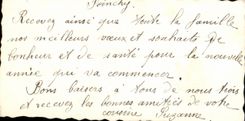 Recevez ainsi que toute la famille
nos meilleurs vœux et souhaits de
bonheur et de santé pour la nouvelle
année que va commencer.
Bons baisers à tous de nous trois
et recevez les bonnes amitiés de votre
cousine Suzanne